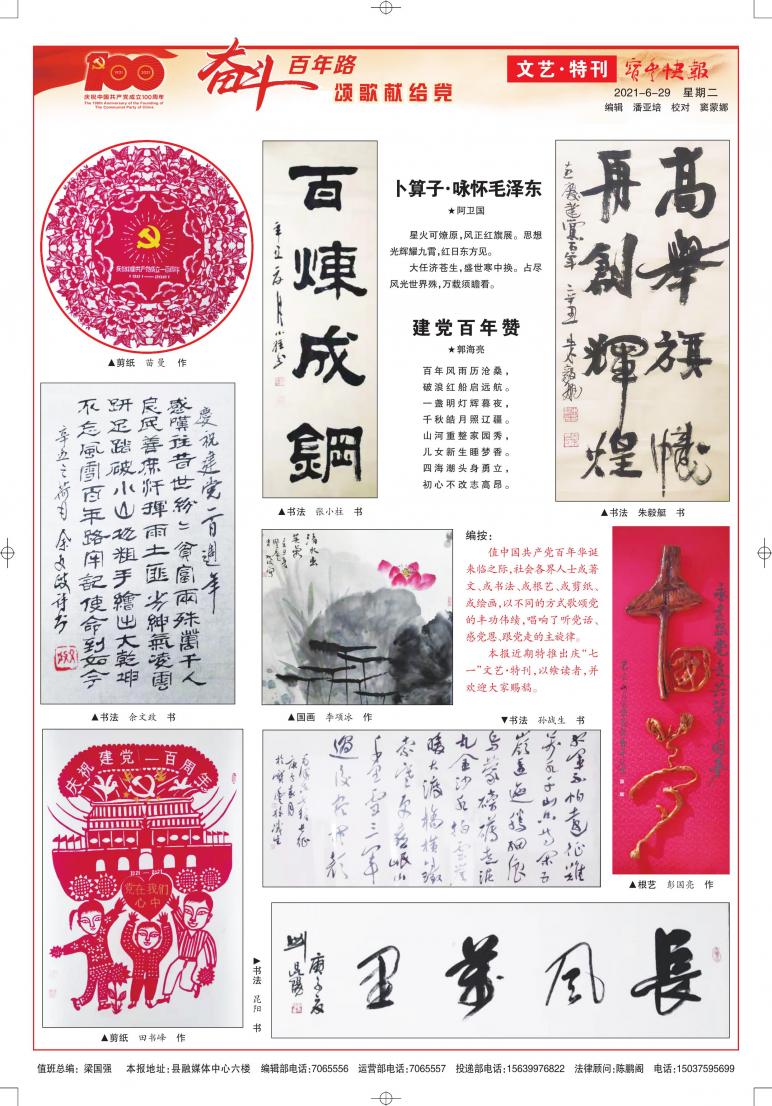 100
1921
2021
庆祝中国共产党成立100周年
The 100th Anniversary of the Founding of
The Communist Party of China
奋斗百年路
颂歌献给党
文艺·特刊
2021-6-29 星期二
编辑 潘亚培 校对 窦蒙娜
庆祝中国共产党成立一百周年
▲剪纸 苗曼 作
百煉成鋼
▲书法 张小柱 书
卜算子·咏怀毛泽东
★阿卫国
星火可燎原,风正红旗展。思想
光辉耀九霄,红日东方见。
大任济苍生,盛世寒中换。占尽
风光世界殊,万载须瞻看。
建党百年赞
★郭海亮
百年风雨历沧桑,
破浪红船启远航。
一盏明灯辉暮夜,
千秋皓月照辽疆。
山河重整家园秀,
儿女新生睡梦香。
四海潮头身勇立,
初心不改志高昂。
高舉旗幟
再創輝煌
▲书法 朱毅艇 书
慶祝建党一百週年
感嘆往昔世紛紛貧富兩殊萬千人
良民善席汗揮雨土匪劣紳氣凌雲
趼足踏破小山村粗手繪出大乾坤
不忘風雪百年路牢記使命到如今
▲书法 余文政 书
▲国画 李项冰 作
编按:
值中国共产党百年华诞
来临之际,社会各界人士或著
文、或书法、或根艺、或剪纸、
或绘画,以不同的方式歌颂党
的丰功伟绩,唱响了听党话、
感党恩、跟党走的主旋律。
本报近期特推出庆“七
一”文艺·特刊,以飨读者,并
欢迎大家赐稿。
▼书法 孙战生 书
▲根艺 彭国亮 作
庆祝建党一百周年
1921—2021
党在我们
心中
▲剪纸 田书峰 作
長風萬里
▶书法 昆阳 书
值班总编:梁国强 本报地址:县融媒体中心六楼 编辑部电话:7065556 运营部电话:7065557 投递部电话:15639976822 法律顾问:陈鹏阁 电话:15037595699